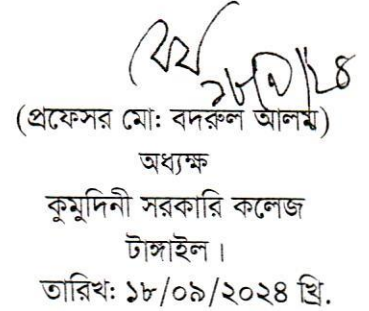 ১৮/৯/২৪
(প্রফেসর মো: বদরুল আলম)
অধ্যক্ষ
কুমুদিনী সরকারি কলেজ
টাঙ্গাইল।
তারিখ: ১৮/০৯/২০২৪ খ্রি.